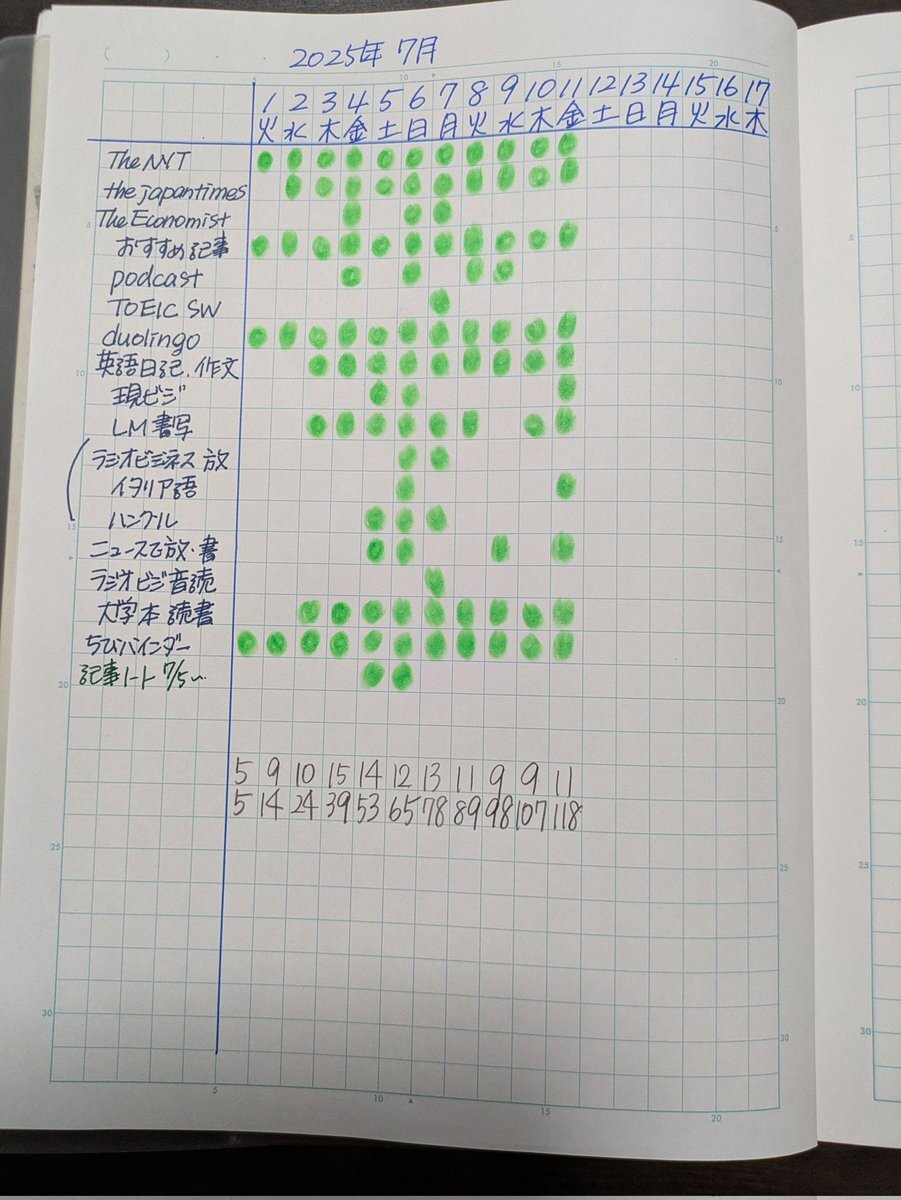 ( )
2025年 7月
5 10 15 20
1 2 3 4 5 6 7 8 9 10 11 12 13 14 15 16 17
火 水 木 金 土 日 月 火 水 木 金 土 日 月 火 水 木
The NYT
the japantimes
The Economist
おすすめ記事
podcast
TOEIC SW
duolingo
英語日記、作文
現ビジ
LM書写
ラジオビジネス 放
イタリア語
ハングル
ニュースで放・書
ラジオビジ音読
大学本 読書
ちびバインダー
記事ノート 7/5〜
5 9 10 15 14 12 13 11 9 9 11
5 14 24 39 53 65 78 89 98 107 118
5 10 15 20 25 30
5 10 15 20 25 30
5 10 15 20
5 10 15 20 25 30